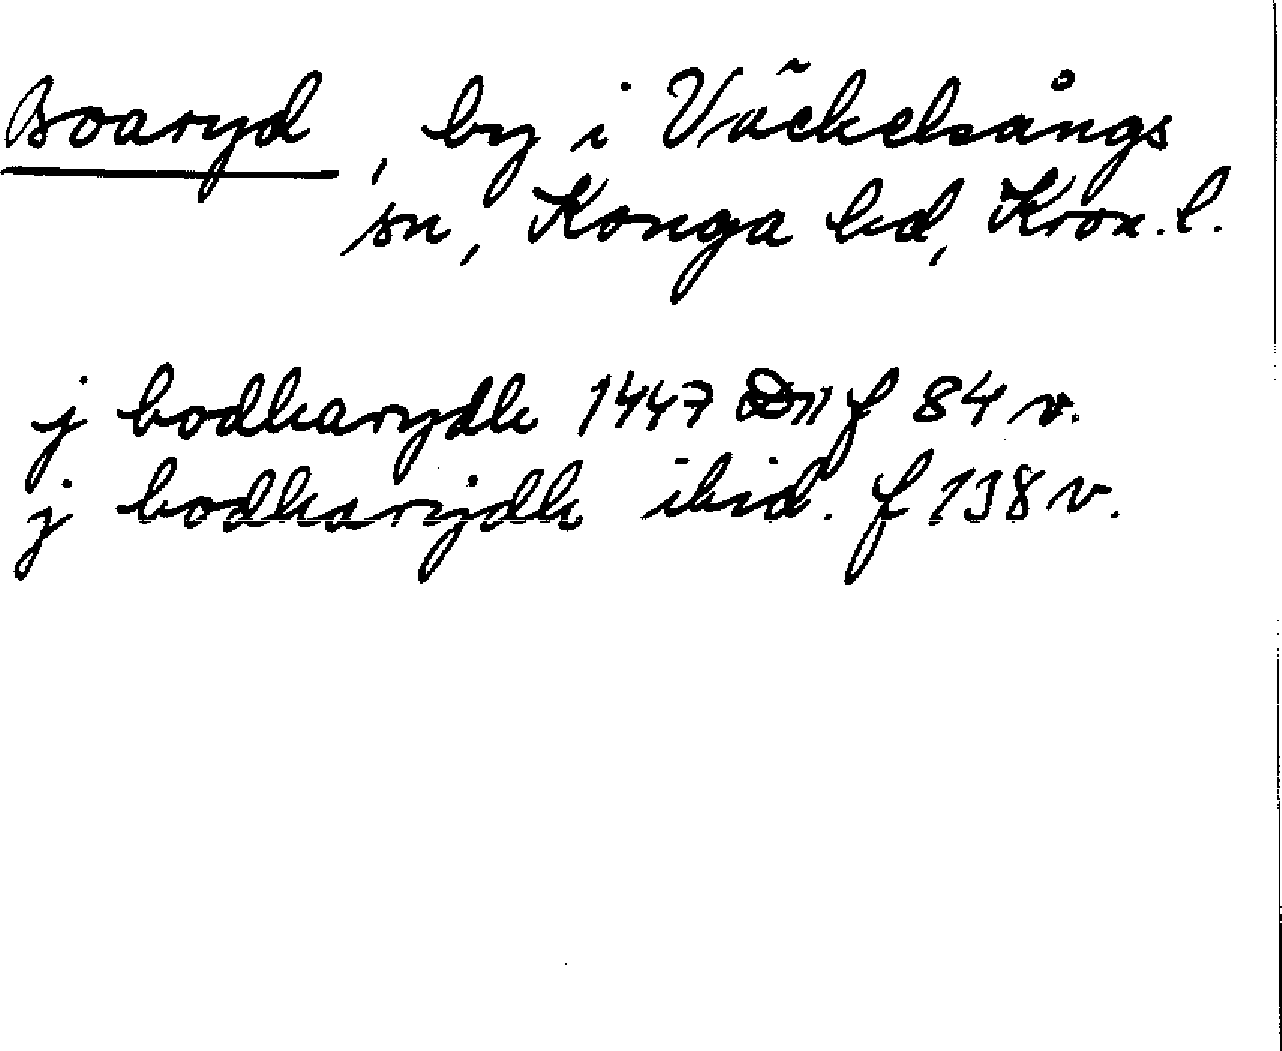 Boaryd, by i Väckelsångs
sn, Konga hd, Kron. l.
j bodharydh 1447 f 84 v.
j bodharijdh ibid. f 138 v.